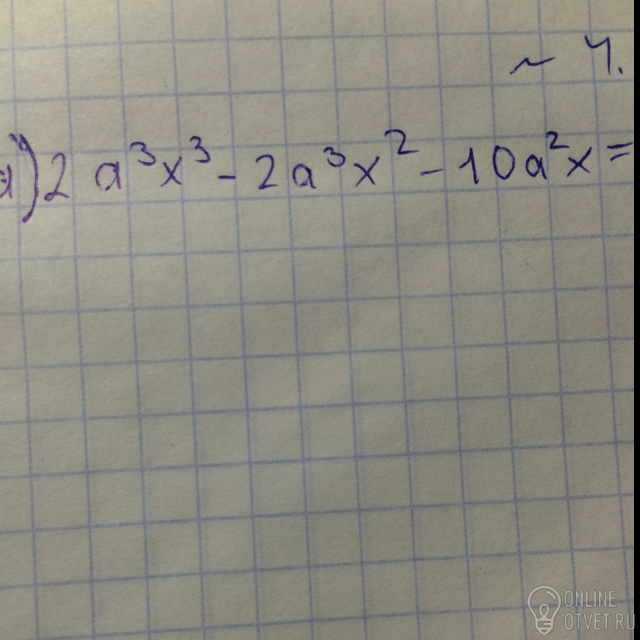 ~ 4.
а) 2a³x³ - 2a³x² - 10a²x =
ONLINE
OTVET.RU